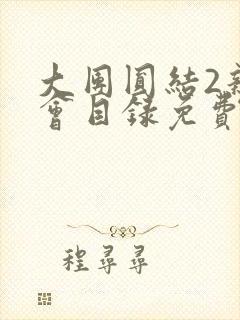 大团圆结2新
会目录免费
程寻寻